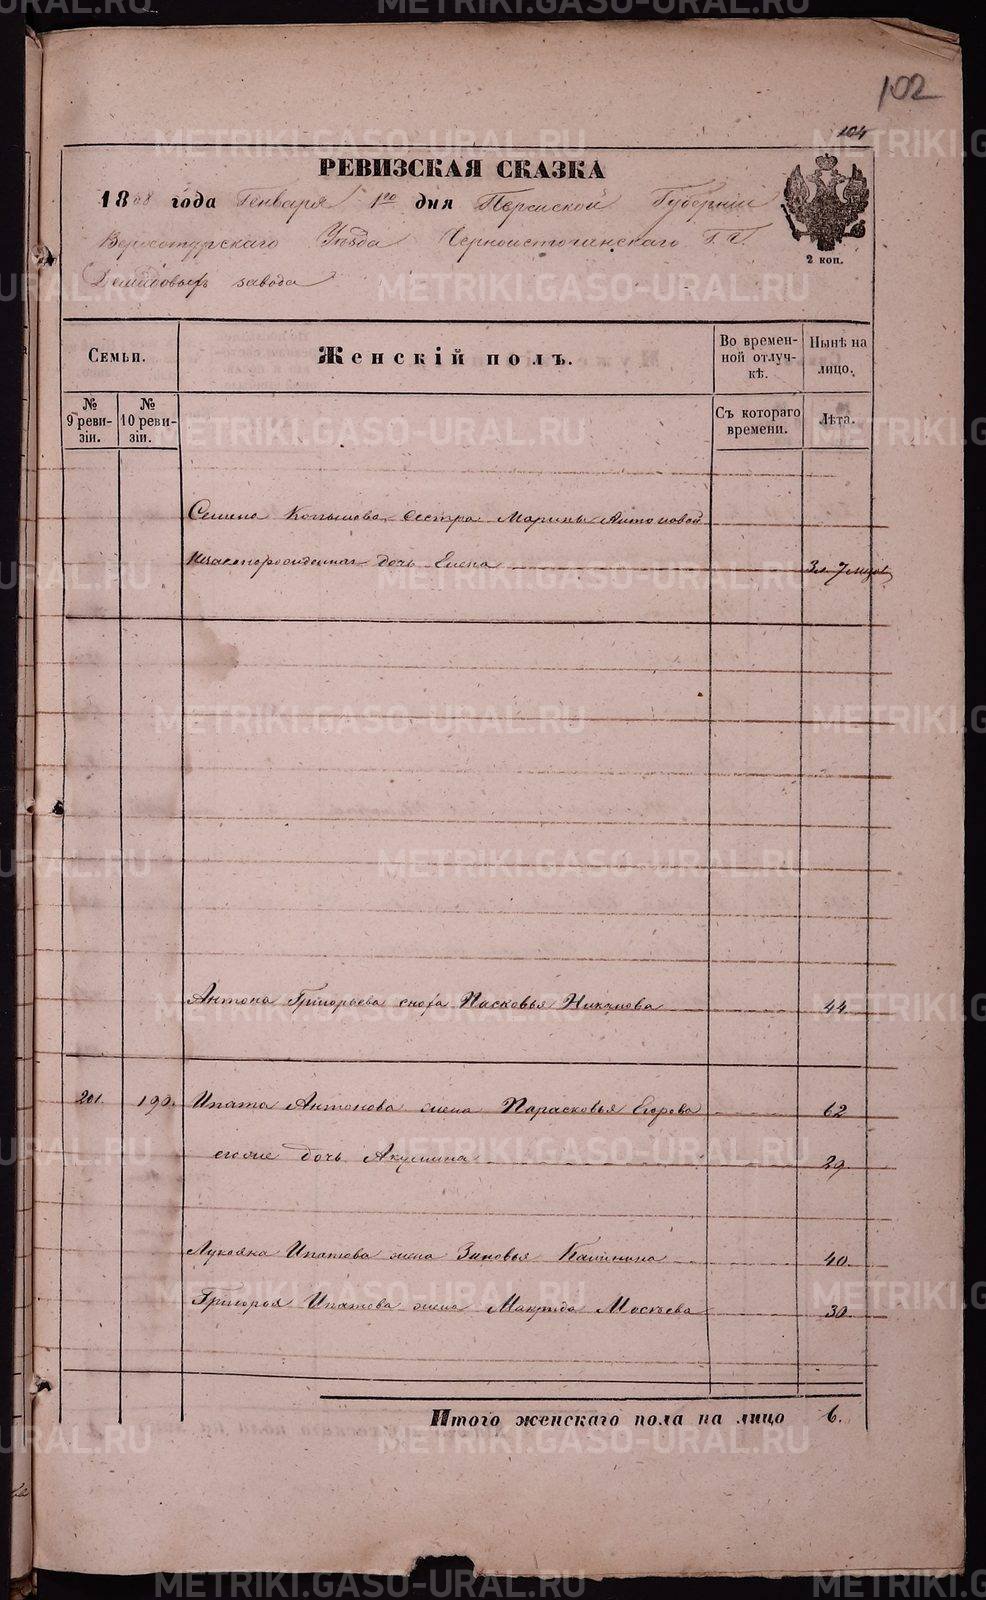 102
104
РЕВИЗСКАЯ СКАЗКА
1858 года Генваря 1го дня Пермской Губернии
Верхотурскаго Уѣзда Черноисточинскаго Г.г.
Демидовыхъ завода
2 коп.
Семьи.
Женскій полъ.
Во времен-
ной отлуч-
кѣ.
Нынѣ на
лицо.
№
9 реви-
зіи.
№
10 реви-
зіи.
Съ котораго
времени.
Лѣта.
Семена сестра Марины Антоновой
незаконорожденная дочь Елена 3 л. 7 мцов
Антона Григорьева сноха Пасковья 44
201. 190. Ипата Антонова жена Парасковья Егорова 62
его же дочь Акулина 29
Лукояна Ипатова жена Зиновья Калинина 40
Григорья Ипатова жена Макрида Мосѣева 30
Итого женскаго пола на лицо 6.
METRIKI.GASO-URAL.RU